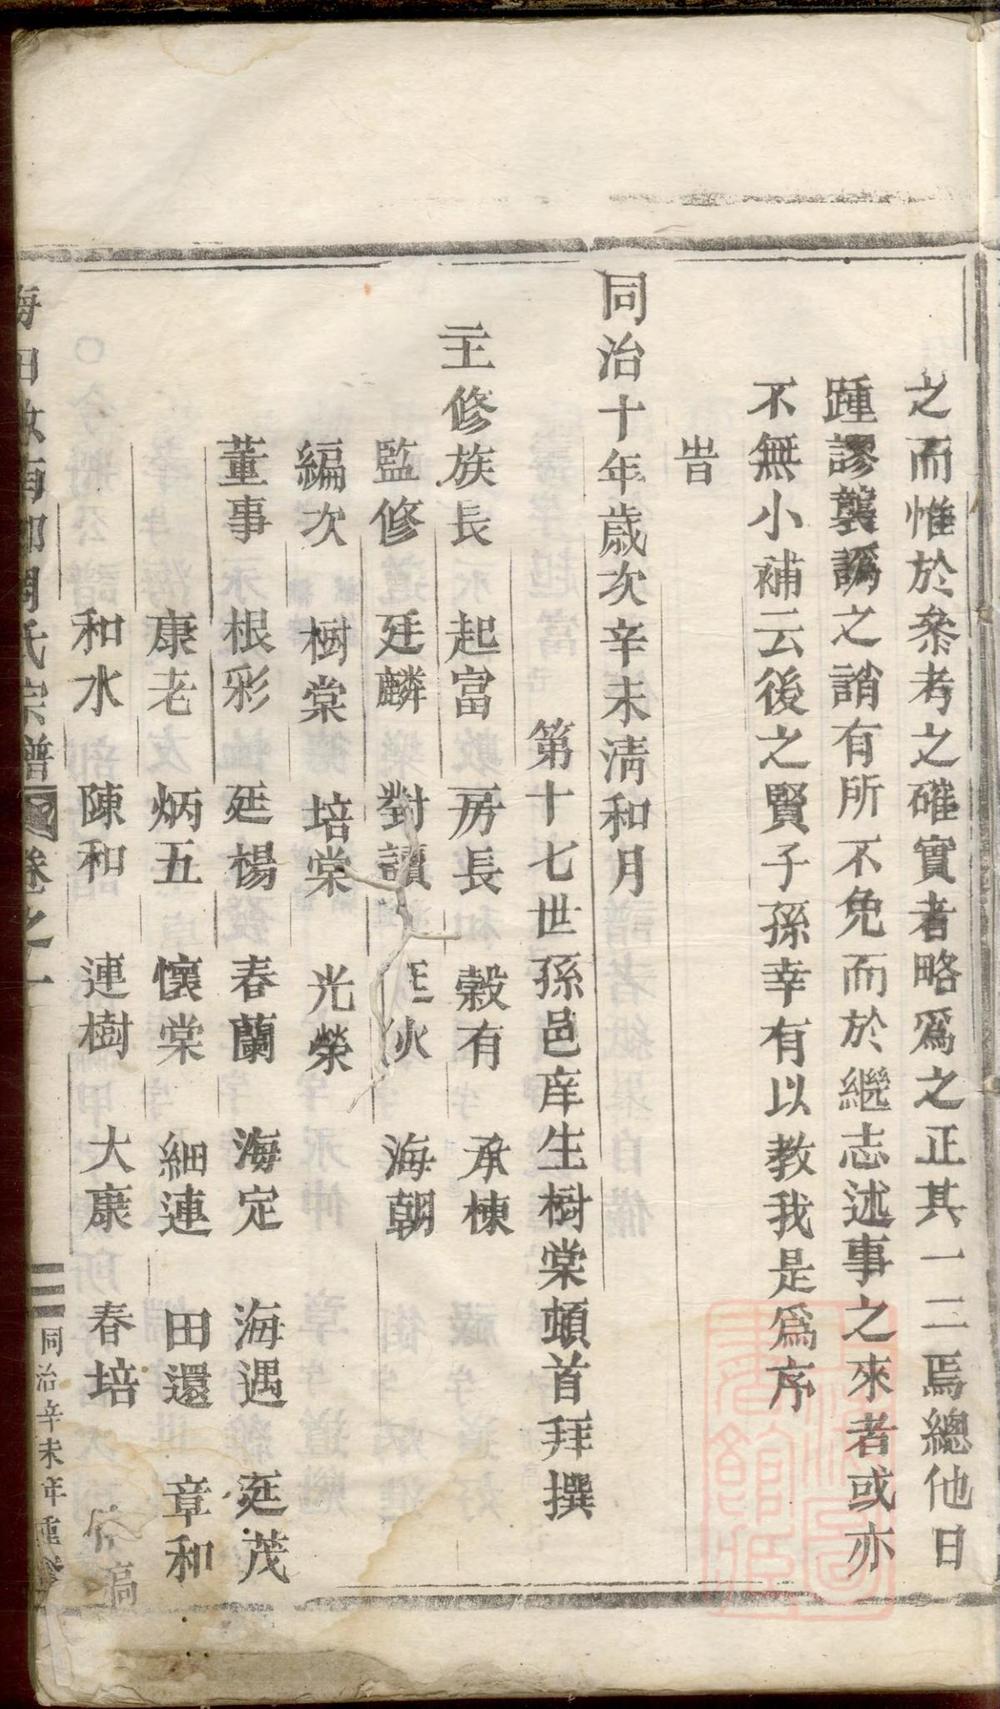 之而惟於叅考之確實者略爲之正其一二焉總他日
踵謬襲譌之誚有所不免而於繼志述事之來者或亦
不無小補云後之賢子孫幸有以教我是爲序
旹
同治十年歲次辛未淸和月
第十七世孫邑庠生樹棠頓首拜撰
主修族長 起富 房長 穀有 承棟
監修 廷麟 對讀 海朝
編次 樹棠 培棠 光榮
董事 根彩 廷楊 春蘭 海定 海遇 廷茂
康老 炳五 懷棠 細連 田還 章和
和水 陳和 連樹 大康 春培
氏宗譜 卷之一 同治辛未年重